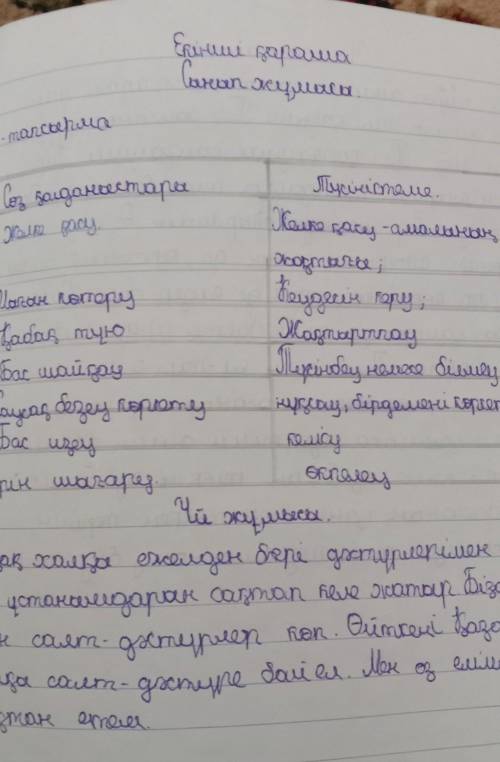 Екінші қараша
Сынып жұмысы.
-тапсырма
Сөз қолданыстары Түсініктеме.
Желке қасу. Желке қасу - амалының
жоқтығы;
көтеру Көңдегін көру;
Қабақ түю Жақтыртпау
Бас шайқау Түсінбеу немесе білмеу
безеу көрсету нұқсау, бірдемені көрсет
Бас изеу келісу
өкпелеу
Үй жұмысы.
ақ халқы ежелден бері дәстүрлерімен
ұстанымдарын сақтап келе жатыр. Біз
н салт-дәстүрлер көп. Өйткені Қаза
салт-дәстүрге бай ел. Мен өз елім
етем.